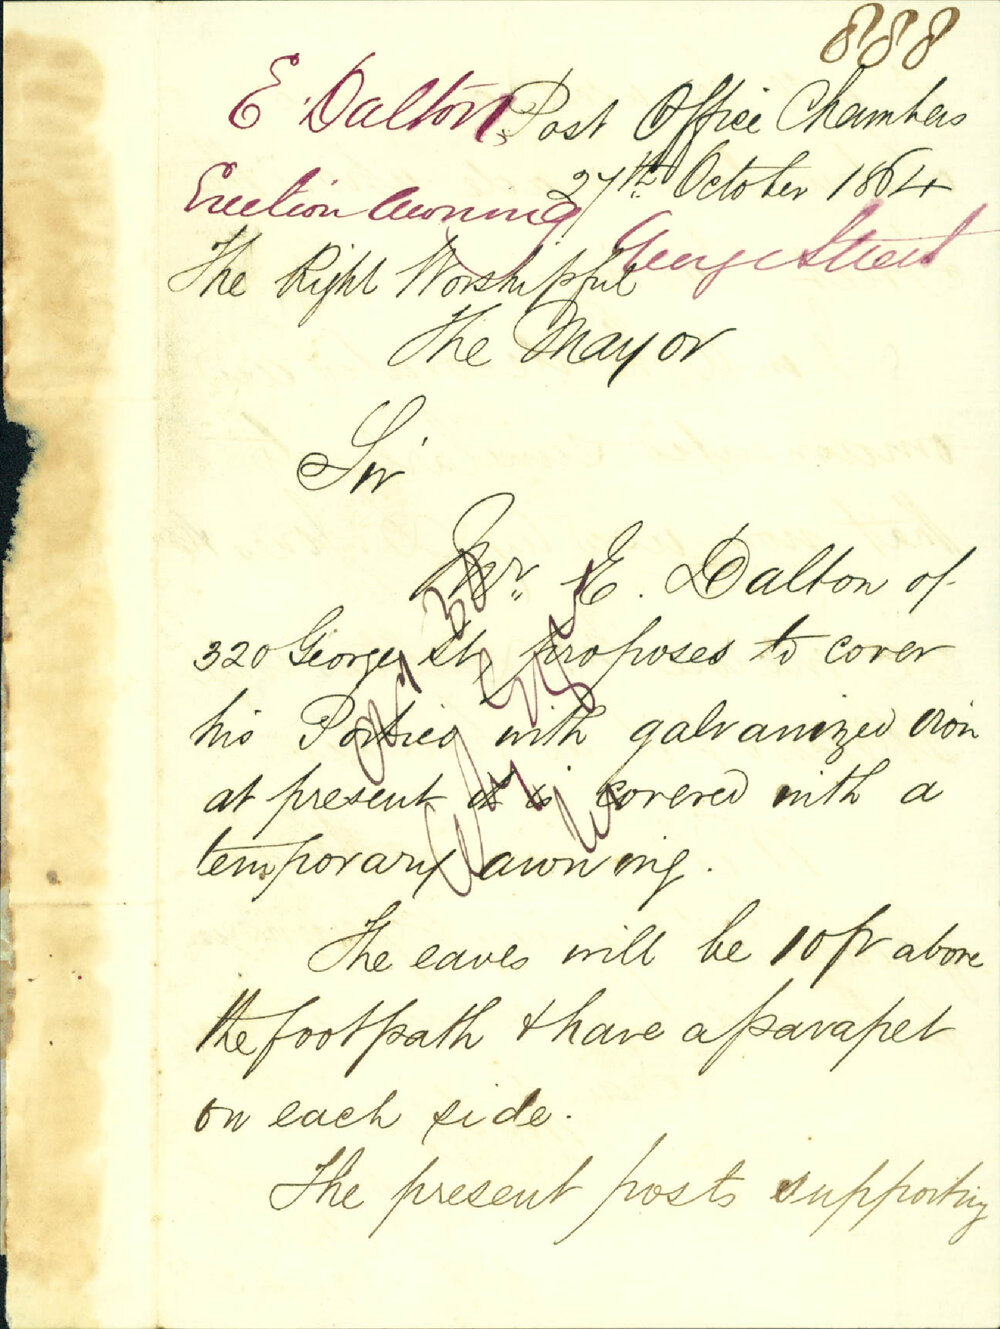 888
E. Dalton
Post Office Chambers
27th October 1864
Erection Awning
George Street
The Right Worshipful
The Mayor
Sir
Mr. E. Dalton of
320 George St, proposes to cover
his Portico with galvanized iron
at present it is covered with a
temporary awning.
The eaves will be 10ft above
the footpath & have a parapet
on each side.
The present posts supporting